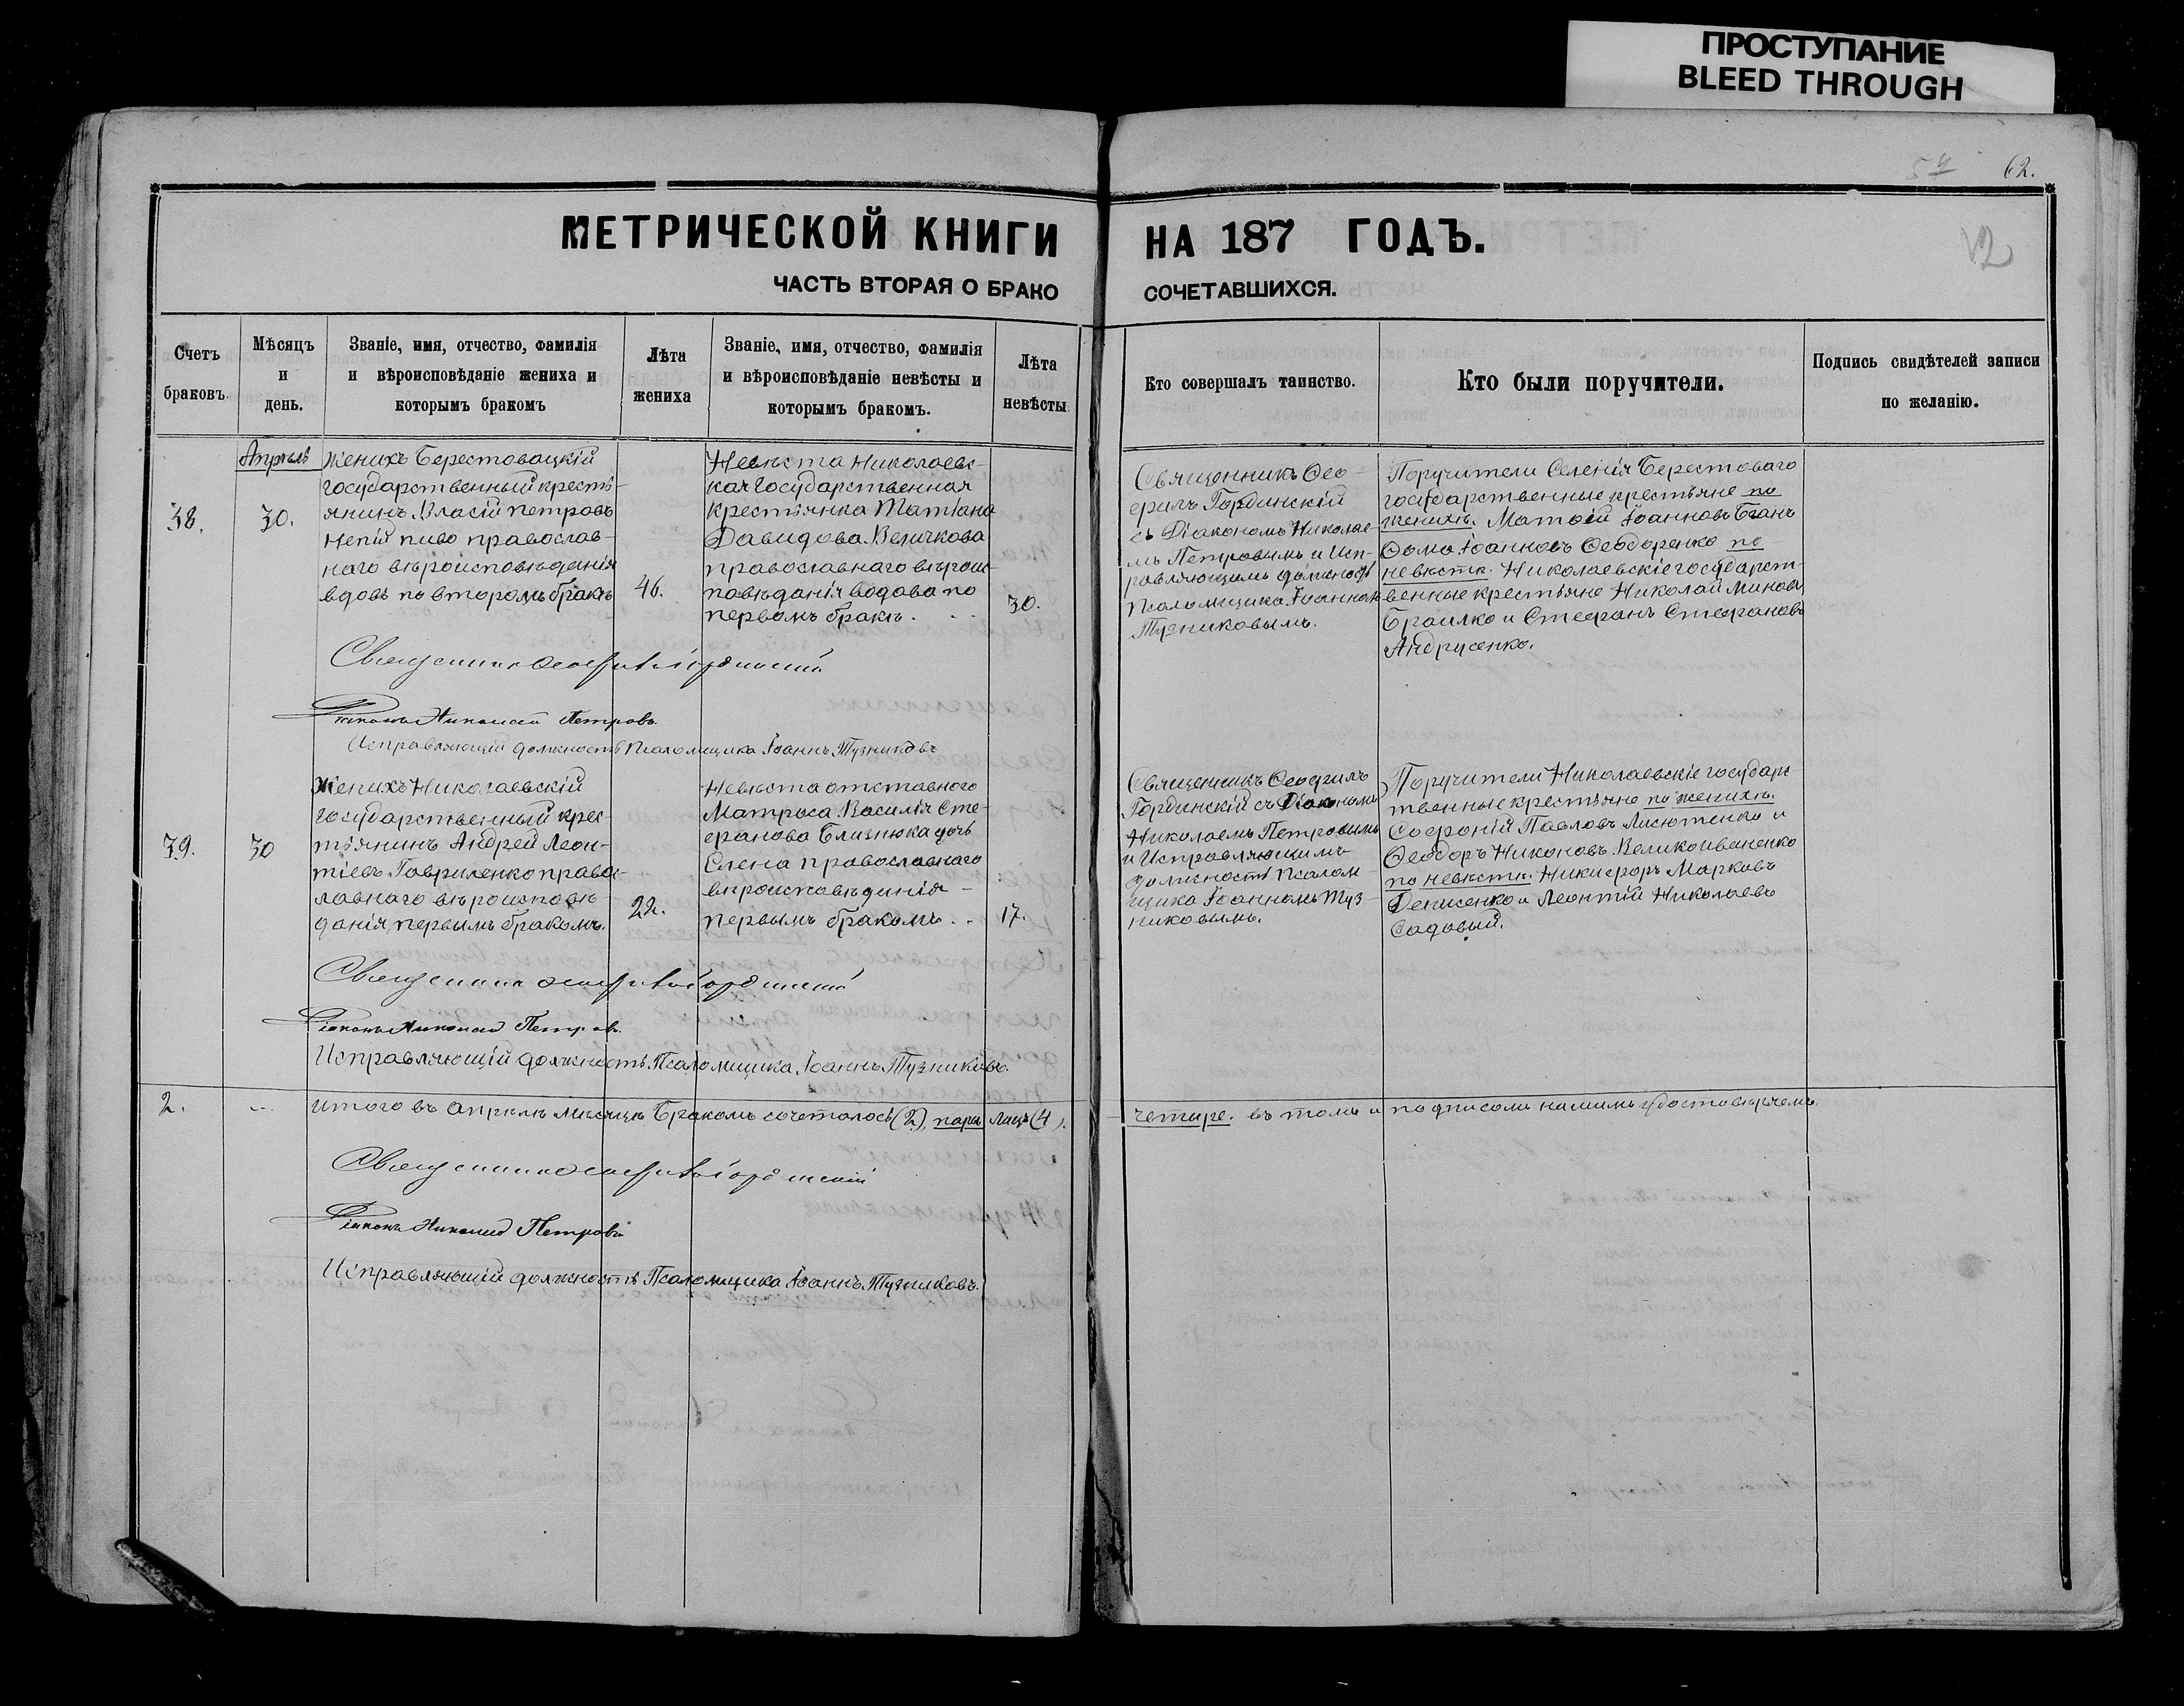 ПРОСТУПАНИЕ
BLEED THROUGH
62.
12
МЕТРИЧЕСКОЙ КНИГИ НА 187 ГОДЪ.
ЧАСТЬ ВТОРАЯ О БРАКО СОЧЕТАВШИХСЯ.
Счетъ
браковъ.
Мѣсяцъ
и
день.
Званіе, имя, отчество, фамилія
и вѣроисповѣданіе жениха и
которымъ бракомъ
Лѣта
жениха
Званіе, имя, отчество, фамилія
и вѣроисповѣданіе невѣсты и
которымъ бракомъ.
Лѣта
невѣсты
Кто совершалъ таинство.
Кто были поручители.
Подпись свидѣтелей записи
по желанію.
38.
Апрѣль
30.
Женихъ Берестовацкій
государственный кресть-
янинъ Власій Петровъ
Непійпиво православ-
наго вѣроисповѣданія
вдовъ по второмъ бракѣ
46.
Невѣста Николаевс-
кая государственная
крестьянка Татіана
Давидова Величкова
православнаго вѣроис-
повѣданія вдова по
первомъ бракѣ.
30.
Священникъ Ѳео-
филъ Гординскій
съ Діакономъ Николае-
мъ Петровымъ и Исп-
равляющимъ должность
Псаломщика Іоанномъ
Тузниковымъ.
Поручители Селенія Берестоваго
государственные крестьяне по
женихѣ. Матѳій Іоанновъ Бганъ
Ѳома Іоанновъ Ѳеодоренко по
невѣстѣ. Николаевскіе государст-
венные крестьяне Николай Миновъ
Браилко и Стефанъ Стефановъ
Андрусенко.
Священникъ Ѳеофилъ Гординскій
Діаконъ Николай Петровъ
Исправляющій должность Псаломщика Іоаннъ Тузниковъ
39.
30
Женихъ Николаевскій
государственный крес-
тьянинъ Андрей Леон-
тіевъ Гавриленко правос-
лавнаго вѣроисповѣ-
данія, первымъ бракомъ.
22.
Невѣста отставного
Матроса Василія Сте-
фанова Близнюка дочь
Елена православнаго
вѣроисповѣданія -
первымъ бракомъ. . -
17.
Священникъ Ѳеофилъ
Гординскій съ Діакономъ
Николаемъ Петровымъ
и Исправляющимъ
должность Псалом-
щика Іоанномъ Туз-
никовымъ.
Поручители Николаевскіе государс-
твенные крестьяне по женихѣ.
Софроній Павловъ Лисютенко и
Ѳеодоръ Никоновъ Великоиваненко
по невѣстѣ. Никифоръ Марковъ
Денисенко и Леонтій Николаевъ
Садовый.
Священникъ Ѳеофилъ Гординскій
Діаконъ Николай Петровъ.
Исправляющій должность Псаломщика Іоаннъ Тузниковъ.
2. Итого въ Апрѣлѣ мѣсяцѣ Бракомъ сочеталось (2), пары лицъ (4). четыре. въ томъ и подписомъ нашимъ удостовѣряемъ.
Священникъ Ѳеофилъ Гординскій
Діаконъ Николай Петровъ
Исправляющій должность Псаломщика Іоаннъ Тузниковъ.